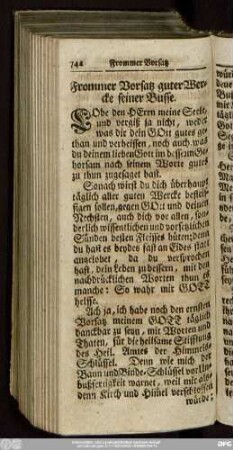 742 Frommer Vorsatz
Frommer Vorsatz guter Wer-
cke seiner Busse.
LObe den HErrn meine Seele,
und vergiß ja nicht, weder
was dir dein GOtt gutes ge-
than und verheissen, noch auch was
du deinem lieben Gott im bessern Ge-
horsam nach seinem Worte gutes
zu thun zugesaget hast.
Sonach wirst du dich überhaupt
täglich aller guter Wercke befleis-
sigen sollen, gegen GOtt und deinen
Nechsten, auch dich vor allen, son-
derlich wissentlichen und vorsetzlichen
Sünden besten Fleisses hüten: denn
du hast es beydes fast an Eides statt
angelobet, da du versprochen
hast, dein Leben zu bessern, mit den
nachdrücklichen Worten
manche: So wahr mir GOTT
helffe.
Ach ja, ich habe noch den ernsten
Vorsatz meinem GOTT täglich
danckbar zu seyn, mit Worten und
Thaten, für die heilsame Stifftung
des Heil. Amtes der Himmels-
Schlüssel. Denn wie mich der
Bann und Binde-Schlüssel vor Un-
bußfertigkeit warnet, weil mir als-
denn Kirch und Himmel verschlossen
würde;